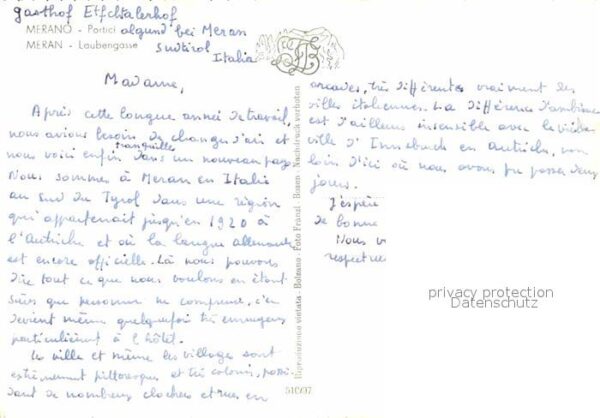 gasthof Etschtalerhof
MERANO - Portici algund bei Meran
MERAN - Laubengasse Südtirol
Italia
Madame,
Après cette longue année de travail,
nous avions besoin de changer d'air et
nous voici enfin tranquilles dans un nouveau pays
Nous sommes à Meran en Italie
au Sud du Tyrol dans une région
qui appartenait jusqu'en 1920 à
l'Autriche et où la langue allemande
est encore officielle. Là nous pouvons
dire tout ce que nous voulons en étant
sûres que personne ne comprend, c'en
devient même quelquefois très ennuyeux
particulièrement à l'hôtel.
La ville et même les villages sont
extrêmement pittoresques et très colorés, possé-
dant de nombreux clochers et rues en
arcades, très différentes vraiment des
villes italiennes. La différence d'ambiance
est d'ailleurs insensible avec la vieille
ville d'Innsbruck en Autriche, non
loin d'ici où nous avons pu passer deux
jours.
J'espère
de bonne
Nous v
respectue
Riproduzione vietata - Bolzano - Foto Fränzl - Bozen - Nachdruck verboten
510/97
privacy protection
Datenschutz